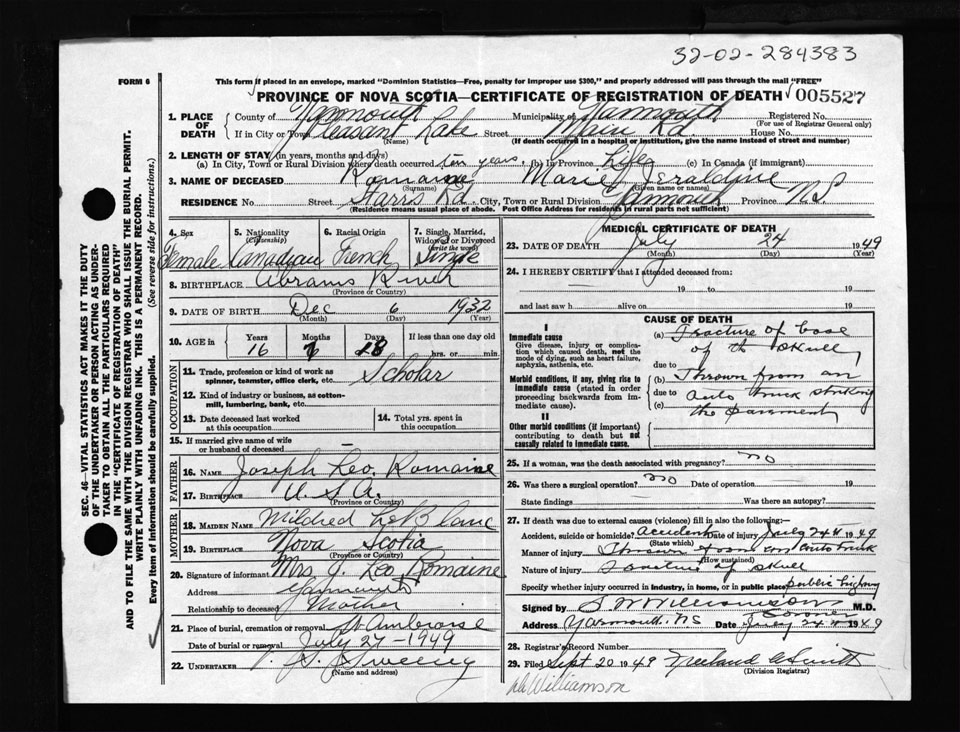 32-02-284383
FORM 6
This form if placed in an envelope, marked "Dominion Statistics—Free, penalty for improper use $300," and properly addressed will pass through the mail "FREE"
PROVINCE OF NOVA SCOTIA—CERTIFICATE OF REGISTRATION OF DEATH 005527
1. PLACE OF DEATH
County of Yarmouth Municipality of Yarmouth Registered No.
(For use of Registrar General only)
If in City or Town Pleasant Lake Street Main Rd House No.
(Name) (If death occurred in a hospital or institution, give the name instead of street and number)
2. LENGTH OF STAY (in years, months and days)
(a) In City, Town or Rural Division where death occurred ten years (b) In Province Life (c) In Canada (if immigrant)
3. NAME OF DECEASED Romaine Marie Jeraldine
(Surname) (Given name or names)
RESIDENCE No. Street Starrs Rd. City, Town or Rural Division Yarmouth Province NS
(Residence means usual place of abode. Post Office Address for residents in rural parts not sufficient)
4. Sex Female
5. Nationality (Citizenship) Canadian
6. Racial Origin French
7. Single, Married, Widowed or Divorced (write the word) Single
8. BIRTHPLACE Abrams River
(Province or Country)
9. DATE OF BIRTH Dec 6 1932
(Month) (Day) (Year)
10. AGE in Years Months Days If less than one day old
16 7 18 hrs. or min.
OCCUPATION
11. Trade, profession or kind of work as spinner, teamster, office clerk, etc. Scholar
12. Kind of industry or business, as cotton-mill, lumbering, bank, etc.
13. Date deceased last worked at this occupation
14. Total yrs. spent in this occupation
15. If married give name of wife or husband of deceased —
FATHER
16. NAME Joseph Leo Romaine
17. BIRTHPLACE U.S.A.
(Province or Country)
MOTHER
18. MAIDEN NAME Mildred LeBlanc
19. BIRTHPLACE Nova Scotia
(Province or Country)
20. Signature of informant Mrs J. Leo Romaine
Address Yarmouth
Relationship to deceased Mother
21. Place of burial, cremation or removal St Ambroise
Date of burial or removal July 27-1949
22. UNDERTAKER V. S. Sweeny
(Name and address)
MEDICAL CERTIFICATE OF DEATH
23. DATE OF DEATH July 24 1949
(Month) (Day) (Year)
24. I HEREBY CERTIFY that I attended deceased from:
19 to 19
and last saw h alive on 19
CAUSE OF DEATH
I
Immediate cause
Give disease, injury or complication which caused death, not the mode of dying, such as heart failure, asphyxia, asthenia, etc.
(a) Fracture of base of the skull
Morbid conditions, if any, giving rise to immediate cause (stated in order proceeding backwards from immediate cause).
due to
(b) Thrown from an
due to auto truck striking
(c) the pavement
II
Other morbid conditions (if important) contributing to death but not causally related to immediate cause.
25. If a woman, was the death associated with pregnancy? no
26. Was there a surgical operation? no Date of operation — 19
State findings Was there an autopsy?
27. If death was due to external causes (violence) fill in also the following:—
Accident, suicide or homicide? Accident Date of injury July 24th 1949
(State which)
Manner of injury Thrown from an auto truck
(How sustained)
Nature of injury Fracture of skull
Specify whether injury occurred in industry, in home, or in public place public highway
Signed by S W Williamson M.D.
Coroner
Address Yarmouth. NS Date July 24th 1949
28. Registrar's Record Number
29. Filed Sept 20 1949
(Division Registrar)
Williamson
SEC. 46—VITAL STATISTICS ACT MAKES IT THE DUTY OF THE UNDERTAKER OR PERSON ACTING AS UNDERTAKER TO OBTAIN ALL THE PARTICULARS REQUIRED IN THE "CERTIFICATE OF REGISTRATION OF DEATH" AND TO FILE THE SAME WITH THE DIVISION REGISTRAR WHO SHALL ISSUE THE BURIAL PERMIT.
WRITE PLAINLY WITH UNFADING INK. THIS IS A PERMANENT RECORD.
Every item of information should be carefully supplied. (See reverse side for instructions.)